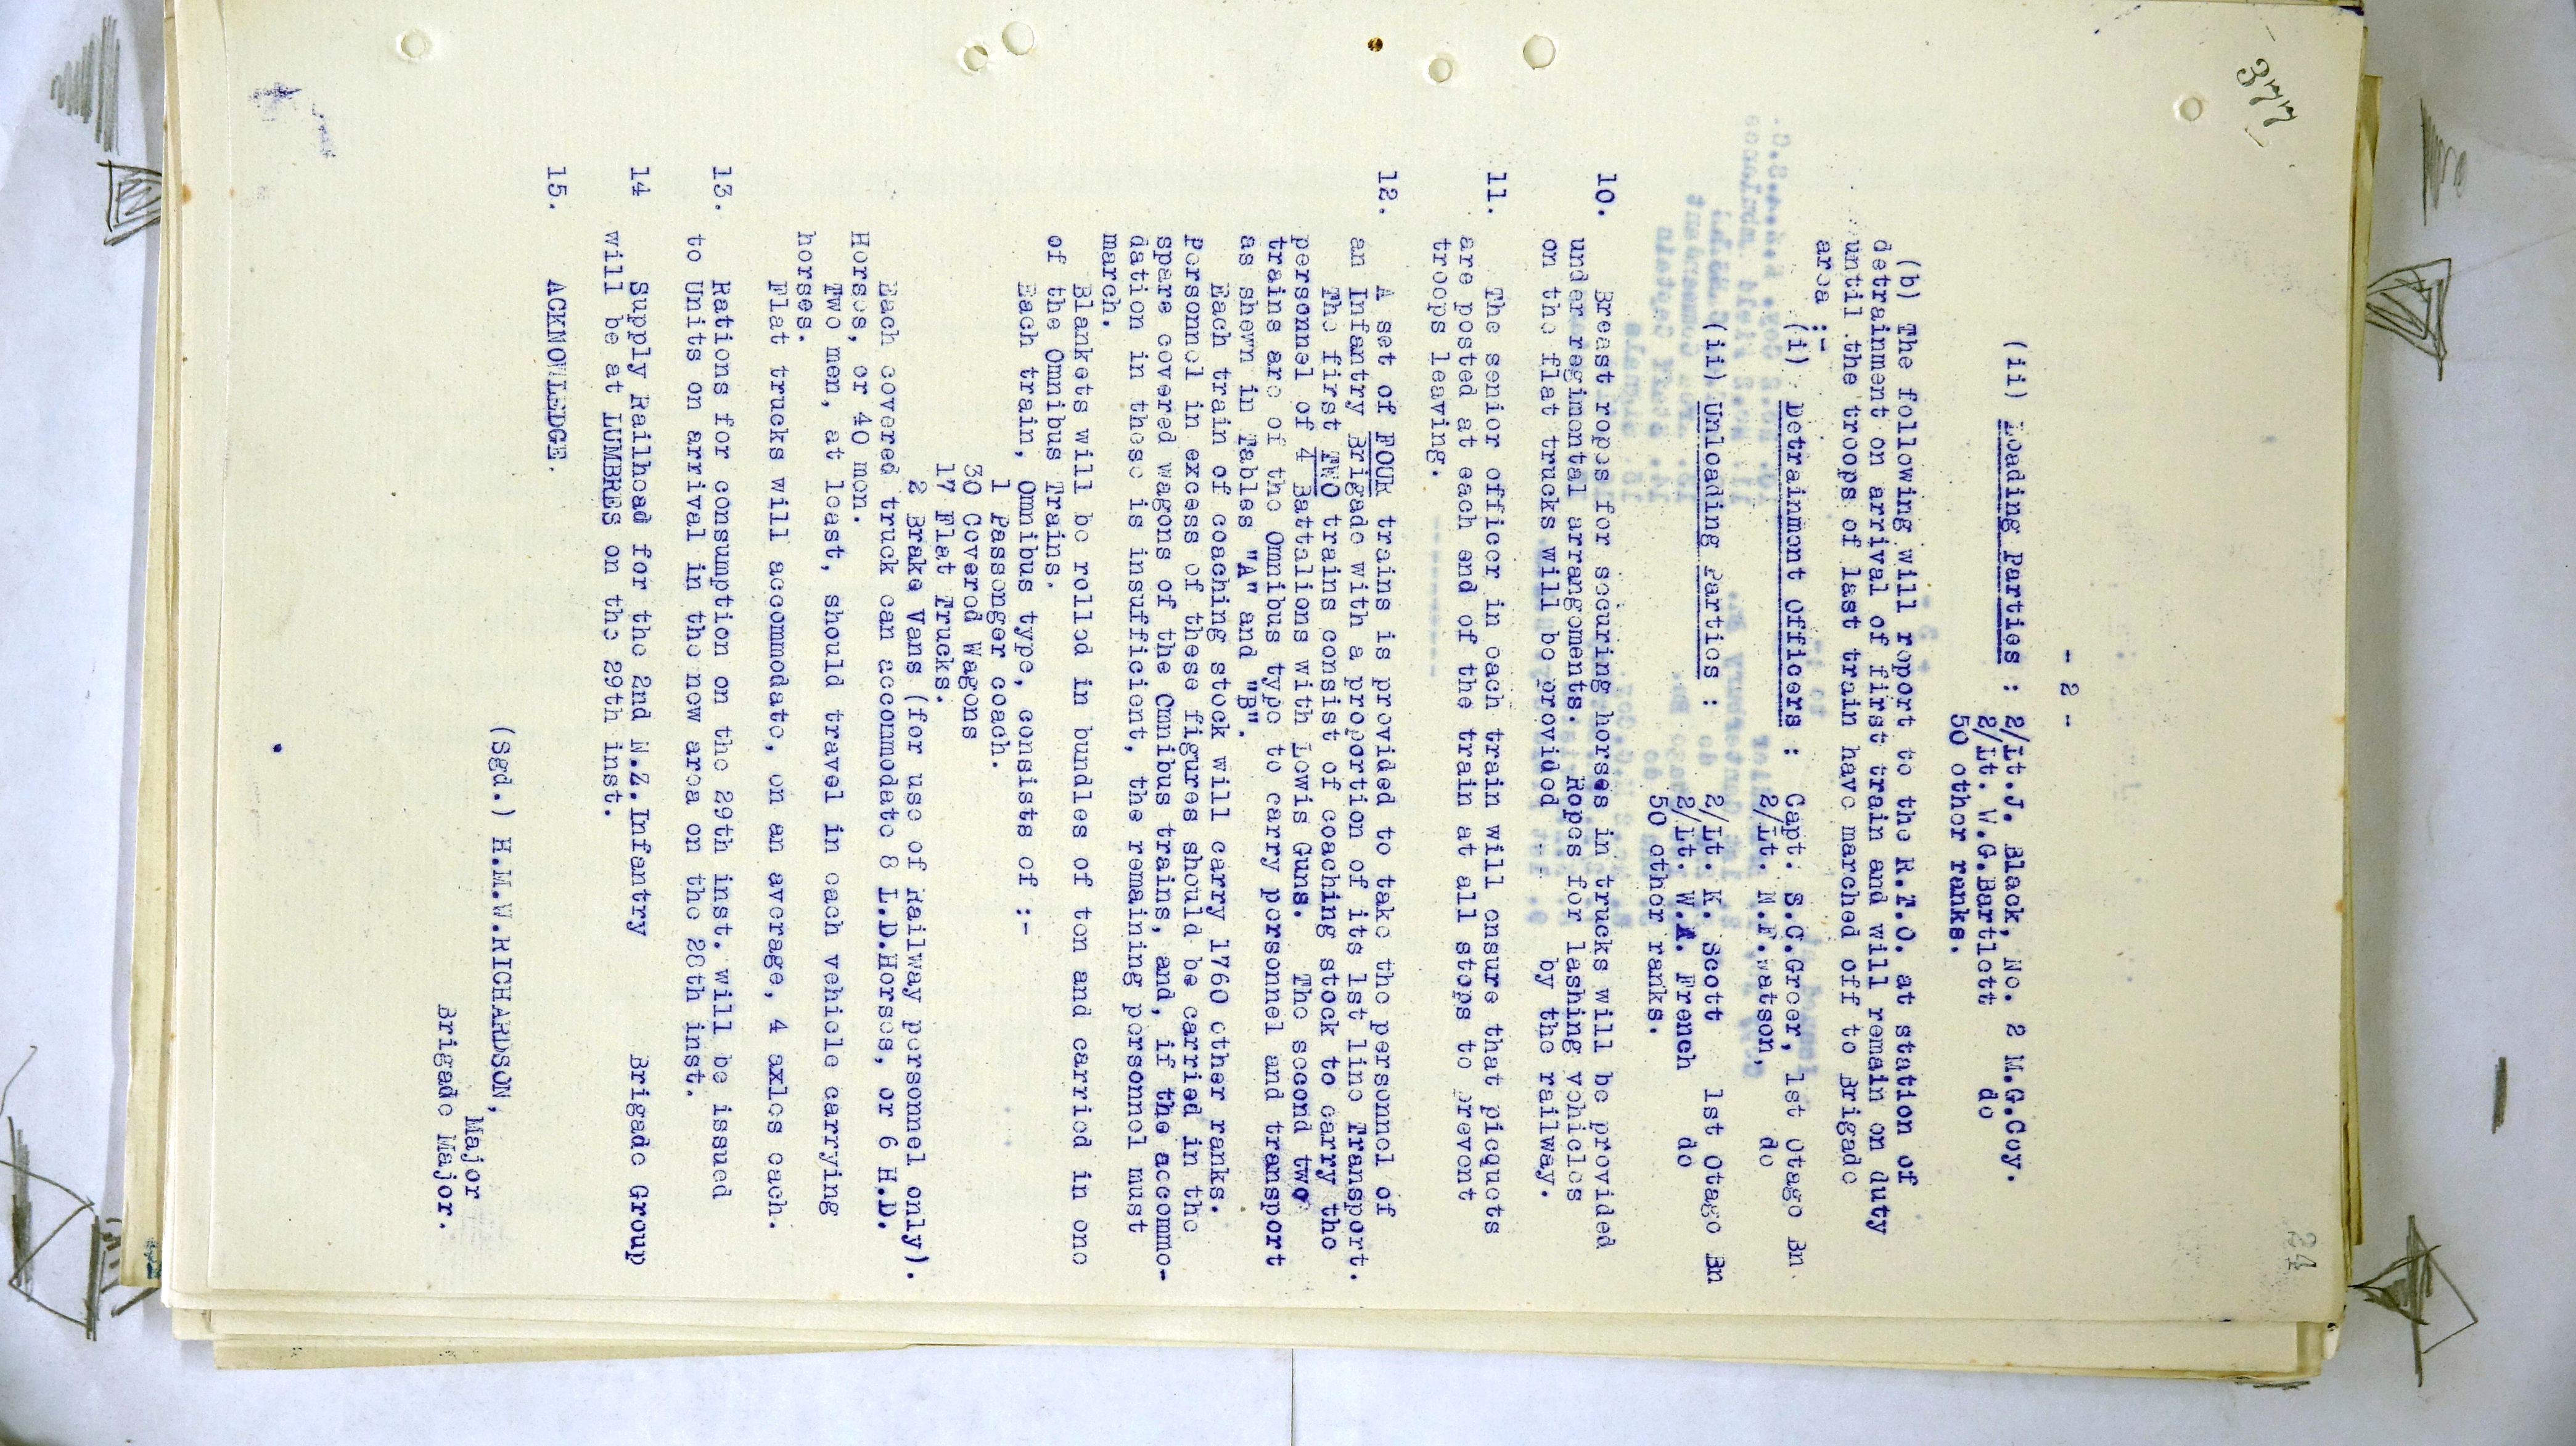 377
24
- 2 -
(ii) Loading Parties : 2/Lt.J. Black, No. 2 M.G.Coy.
2/Lt. W.G.Bartlett do
50 other ranks.
(b) The following will report to the R.T.O. at station of
detrainment on arrival of first train and will remain on duty
until the troops of last train have marched off to Brigade
area :-
(i) Detrainment Officers : Capt. S.C.Greer, 1st Otago Bn.
2/Lt. M.F.Watson, do
(ii) Unloading Parties : 2/Lt. K. Scott 1st Otago Bn
2/Lt. W.A. French do
50 other ranks.
10. Breast ropes for securing horses in trucks will be provided
under regimental arrangements. Ropes for lashing vehicles
on the flat trucks will be provided by the railway.
11. The senior officer in each train will ensure that picquets
are posted at each end of the train at all stops to prevent
troops leaving.
12. A set of FOUR trains is provided to take the personnel of
an Infantry Brigade with a proportion of its 1st line Transport.
The first TWO trains consist of coaching stock to carry the
personnel of 4 Battalions with Lewis Guns. The second two
trains are of the Omnibus type to carry personnel and transport
as shewn in Tables "A" and "B".
Each train of coaching stock will carry 1760 other ranks.
Personnel in excess of these figures should be carried in the
spare covered wagons of the Omnibus trains, and, if the accommo-
dation in these is insufficient, the remaining personnel must
march.
Blankets will be rolled in bundles of ten and carried in one
of the Omnibus Trains.
Each train, Omnibus type, consists of :-
1 Passenger coach.
30 Covered Wagons
17 Flat Trucks.
2 Brake Vans (for use of Railway personnel only).
Each covered truck can accommodate 8 L.D.Horses, or 6 H.D.
Horses, or 40 men.
Two men, at least, should travel in each vehicle carrying
horses.
Flat trucks will accommodate, on an average, 4 axles each.
13. Rations for consumption on the 29th inst. will be issued
to Units on arrival in the new area on the 28th inst.
14 Supply Railhead for the 2nd N.Z.Infantry Brigade Group
will be at LUMBRES on the 29th inst.
15. ACKNOWLEDGE.
(Sgd.) H.M.W.RICHARDSON,
Major
Brigade Major.